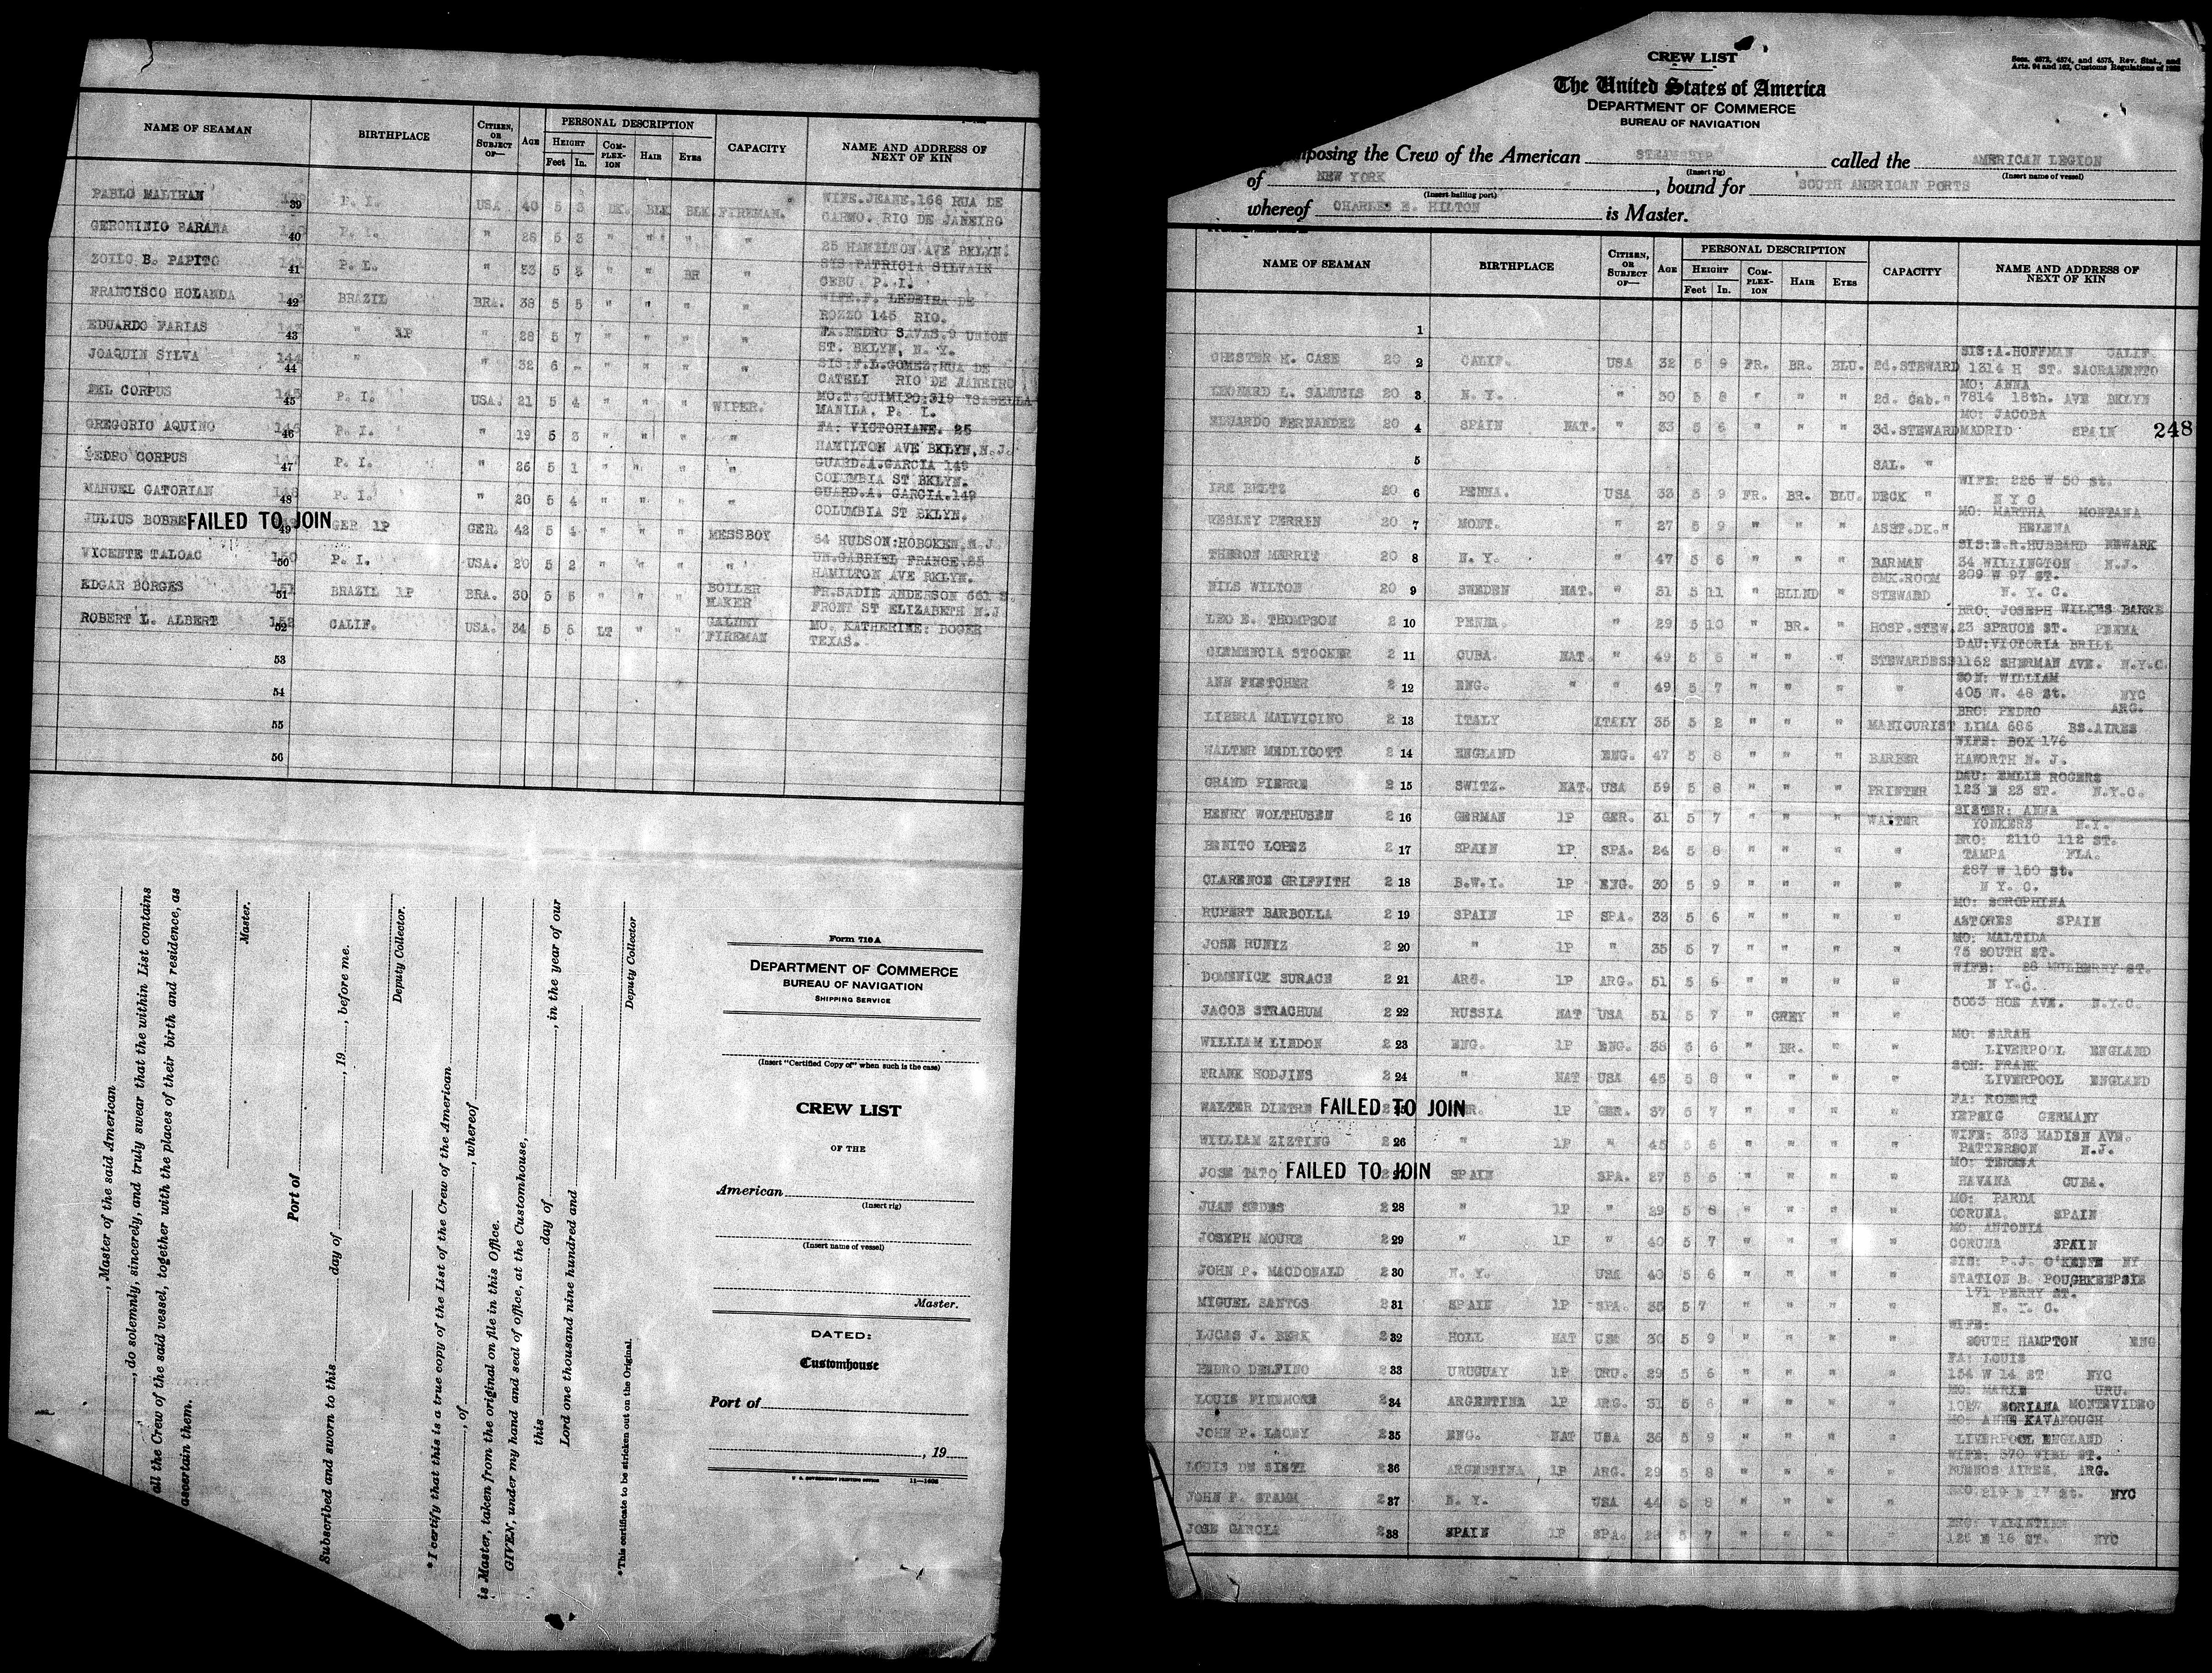 NAME OF SEAMAN BIRTHPLACE CITIZEN, OR SUBJECT OF— AGE PERSONAL DESCRIPTION CAPACITY NAME AND ADDRESS OF NEXT OF KIN
HEIGHT COMPLEXION HAIR EYES
Feet In.
PABLO MALIHAN 39 P. I. USA 40 5 3 DK. BLK BLK FIREMAN. WIFE.JEANE.166 RUA DE
CARMO. RIO DE JANEIRO
GERONINIO BARANA 40 P. I. " 28 5 3 " " " "
25 HAMILTON AVE BKLYN.
ZOILO B. PAPITO 41 P. I. " 33 5 3 " " BR " SIS PATRICIA SILVAIE
CEBU P. I.
FRANCISCO HOLANDA 42 BRAZIL BRA. 38 5 5 " " " " WIFE.F. LEDEIRA DE
ROZZO 145 RIO.
EDUARDO FARIAS 43 " 1P " 28 5 7 " " " " FA.PEDRO SAVAS.9 UNION
ST. BKLYN, N. Y.
JOAQUIN SILVA 144 44 " " 32 6 - " " " " SIS:F.L.GOMEZ:RUA DE
CATELI RIO DE JANEIRO
DEL CORPUS 45 P. I. USA. 21 5 4 " " " WIPER. MO.T.QUIMIPO:319 ISABELLA
MANILA, P. I.
GREGORIO AQUINO 46 P. I. " 19 5 3 " " " " FA: VICTORIANE. 25
HAMILTON AVE BKLYN,N.J.
PEDRO CORPUS 47 P. I. " 26 5 1 " " " " GUARD.A.GARCIA 149
COLUMBIA ST BKLYN.
MANUEL GATORIAN 48 P. I. " 20 5 4 " " " " GUARD.A. GARCIA.149
COLUMBIA ST BKLYN.
JULIUS BOBBE FAILED TO JOIN 49 GER 1P GER. 42 5 4 " " " MESSBOY
54 HUDSON:HOBOKEN,N.J.
VICENTE TALOAC 150 50 P. I. USA. 20 5 2 " " " " UN.GABRIEL FRANCE.25
HAMILTON AVE BKLYN.
EDGAR BORGES 151 51 BRAZIL 1P BRA. 30 5 5 " " " BOILER MAKER FR.SADIE ANDERSON 661 S.
FRONT ST ELIZABETH N.J
ROBERT L. ALBERT 152 52 CALIF. USA. 34 5 5 LT " " GALNEY FIREMAN MO. KATHERINE: BOGER
TEXAS.
53
54
55
56
, Master of the said American
, do solemnly, sincerely, and truly swear that the within List contains
all the Crew of the said vessel, together with the places of their birth and residence, as
ascertain them.
Master.
Port of
Subscribed and sworn to this day of , 19 , before me.
Deputy Collector.
*I certify that this is a true copy of the List of the Crew of the American
, of , whereof
is Master, taken from the original on file in this Office.
GIVEN, under my hand and seal of office, at the Customhouse,
this day of , in the year of our
Lord one thousand nine hundred and
Deputy Collector
*This certificate to be stricken out on the Original.
Form 710A
DEPARTMENT OF COMMERCE
BUREAU OF NAVIGATION
SHIPPING SERVICE
(Insert "Certified Copy of" when such is the case)
CREW LIST
OF THE
American
(Insert rig)
(Insert name of vessel)
Master.
DATED:
Customhouse
Port of
, 19
U. S. GOVERNMENT PRINTING OFFICE 11—1606
CREW LIST
Secs. 4573, 4574, and 4575, Rev. Stat., and
The United States of America
DEPARTMENT OF COMMERCE
BUREAU OF NAVIGATION
mposing the Crew of the American STEAMSHIP called the AMERICAN LEGION
(Insert rig) (Insert name of vessel)
of NEW YORK , bound for SOUTH AMERICAN PORTS
(Insert hailing port)
whereof CHARLES E. HILTON is Master.
NAME OF SEAMAN BIRTHPLACE CITIZEN, OR SUBJECT OF— AGE PERSONAL DESCRIPTION CAPACITY NAME AND ADDRESS OF NEXT OF KIN
HEIGHT COMPLEXION HAIR EYES
Feet In.
1
CHESTER M. CASE 20 2 CALIF. USA 32 5 9 FR. BR. BLU. 2d.STEWARD SIS:A.HOFFMAN CALIF.
1314 H ST. SACRAMENTO
LEONARD L. SAMUELS 20 3 N. Y. " 30 5 8 " " " 2d. Cab." MO: ANNA
7814 18th. AVE BKLYN
EDUARDO FERNANDEZ 20 4 SPAIN NAT. " 33 5 6 " " " 3d.STEWARD MO: JACOBA
MADRID SPAIN 248
5 SAL. "
IRA BELTZ 20 6 PENNA. USA 33 5 9 FR. BR. BLU. DECK " WIFE: 225 W 50 St.
N Y C
WESLEY PERRIN 20 7 MONT. " 27 5 9 " " " ASST.DK." MO: MARTHA MONTANA
HELENA
THERON MERRIT 20 8 N. Y. " 47 5 6 " " " BARMAN SIS:E.R.HUBBARD NEWARK
34 WILLINGTON N.J.
NILS WILTON 20 9 SWEDEN NAT. " 31 5 11 " BLLND " SMK.ROOM STEWARD 209 W 97 ST.
N. Y. C.
LEO E. THOMPSON 2 10 PENNA. " 29 5 10 " BR. " HOSP.STEW. BRO: JOSEPH WILKES BARRE
23 SPRUCE ST. PENNA
CLEMENCIA STOCKER 2 11 CUBA. NAT. " 49 5 6 " " " STEWARDESS DAU:VICTORIA BRILL
1162 SHERMAN AVE. N.Y.C.
ANN FLETCHER 2 12 ENG. " " 49 5 7 " " " " SON: WILLIAM
405 W. 48 St. NYC
LIBERA MALVICINO 2 13 ITALY ITALY 35 5 2 " " " MANICURIST BRO: PEDRO ARG.
LIMA 686 BS.AIRES
WALTER MEDLICOTT 2 14 ENGLAND ENG. 47 5 8 " " " BARBER WIFE: BOX 176
HAWORTH N. J.
GRAND PIERRE 2 15 SWITZ. NAT. USA 59 5 8 " " " PRINTER DAU: EMLIE ROGERS
123 E 23 ST. N.Y.C.
HENRY WOLTHUSEN 2 16 GERMAN 1P GER. 31 5 7 " " " WAITER SISTER: ANNA
YONKERS N.Y.
BENITO LOPEZ 2 17 SPAIN 1P SPA. 24 5 8 " " " " BRO: 2110 112 ST.
TAMPA FLA.
CLARENCE GRIFFITH 2 18 B.W.I. 1P ENG. 30 5 9 " " " " 267 W 150 St.
N Y. C.
RUPERT BARBOLLA 2 19 SPAIN 1P SPA. 33 5 6 " " " " MO: SOROPHINA
ASTORES SPAIN
JOSE RUNIZ 2 20 " 1P " 35 5 7 " " " " MO: MALTIDA
75 SOUTH ST.
DOMENICK SURACE 2 21 ARG. 1P ARG. 51 5 5 " " " " WIFE: 86 MULBERRY ST.
N Y.C.
JACOB STRACHUM 2 22 RUSSIA NAT USA 51 5 7 " GREY " " HOE AVE. N.Y.C.
WILLIAM LINDON 2 23 ENG. 1P ENG. 38 5 6 " BR. " " MO: SARAH
LIVERPOOL ENGLAND
FRANK HODJINS 2 24 " NAT USA 45 5 8 " " " " SON: FRANK
LIVERPOOL ENGLAND
WALTER DIETRE FAILED TO JOIN 1P GER. 37 5 7 " " " " FA: ROBERT
YEPZIG GERMANY
WILLIAM ZIZTING 2 26 " 1P " 45 5 6 " " " " WIFE: 393 MADISN AVE.
PATTERSON N.J.
JOSE TATO FAILED TO JOIN SPAIN SPA. 27 5 5 " " " " MO: TERESA
HAVANA CUBA.
JUAN SEDES 2 28 " 1P " 29 5 8 " " " " MO: PARDA
CORUNA. SPAIN
JOSEPH MOURE 2 29 " 1P " 40 5 7 " " " " MO: ANTONIA
CORUNA SPAIN
JOHN P. MACDONALD 2 30 N. Y. USA 40 5 6 " " " " SIS: P.J. O'KEEFE NY
STATION B. POUGHKEEPSIE
MIGUEL SANTOS 2 31 SPAIN 1P SPA. 35 5 7 " " " " 171 PERRY ST.
N. Y. C.
LUCAS J. BERK 2 32 HOLL NAT USA 30 5 9 " " " " WIFE:
SOUTH HAMPTON ENG
PEDRO DELFINO 2 33 URUGUAY 1P URU. 29 5 6 " " " " FA: LOUIS
154 W 14 ST NYC
LOUIS FINEMORE 2 34 ARGENTINA 1P ARG. 31 5 6 " " " " MO: MARIE URU.
SORIANA MONTEVIDEO
JOHN P. LACEY 2 35 ENG. NAT USA 36 5 9 " " " " MO: ANNE KAVANOUGH
LIVERPOOL ENGLAND
LOUIS DE SISTI 2 36 ARGENTINA 1P ARG. 29 5 8 " " " " WIFE: 370 ST.
BUENOS AIRES, ARG.
JOHN F. STAMM 2 37 N. Y. USA 44 5 8 " " " " E 17 St. NYC
JOSE GARCIA 2 38 SPAIN 1P SPA. 5 7 " " " "
E 16 ST. NYC